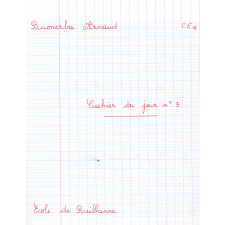 Buonerba Arnaud CE2
Cahier du jour n°3
Ecole de Puilbonne